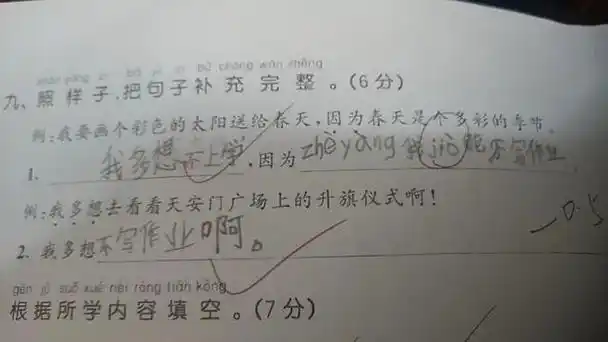 zhào yàng zi bǎ jù zi bǔ chōng wán zhěng
九、照样子,把句子补充完整。(6分)
例:我要画个彩色的太阳送给春天,因为春天是个多彩的季节。
1. 我多想不上学,因为zhè yàng 我jiù能不写作业
例:我多想去看看天安门广场上的升旗仪式啊!
-0.5
2. 我多想不写作业啊。
gēn jù suǒ xué nèi róng tián kòng
根据所学内容填空。(7分)